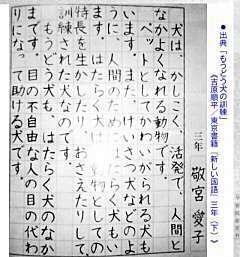 ●出典「もうどう犬の訓練
（吉原順平／東京書籍「新しい国語」三年（下））
三年　敬宮　愛子
犬は、かしこく、活発で、人間と
なかよくなれる動物です。
ペットとしてかわいがられる犬も
います。また、けいさつ犬などのよ
うに、人間のためにはたらく犬もい
ます。はたらく犬は、動物としての
特長を生かしたり、おさえたりして、
訓練された犬なのです。
もうどう犬も、はたらく犬のなか
まです。目の不自由な人の目の代わ
りになって助ける犬です。